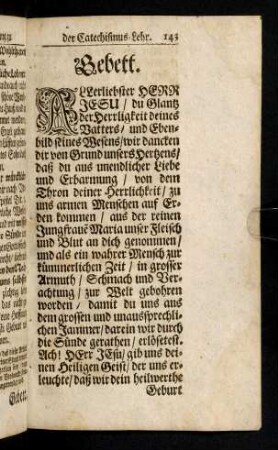 der Catechismus-Lehr. 143
Gebett.
ALLerliebster HERR
JESU / du Glantz
der Herrligkeit deines
Vatters / und Eben-
bild seines Wesens / wir dancken
dir von Grund unsers Hertzens /
daß du aus unendlicher Liebe
und Erbarmung / von dem
Thron deiner Herrlichkeit / zu
uns armen Menschen auf Er-
den kommen / aus der reinen
Jungfrau Maria unser Fleisch
und Blut an dich genommen /
und als ein wahrer Mensch zur
kümmerlichen Zeit / in grosser
Armuth / Schmach und Ver-
achtung / zur Welt gebohren
worden / damit du uns aus
dem grossen und unaussprechli-
chen Jammer / darein wir durch
die Sünde gerathen / erlösetest.
Ach! HErr JEsu / gib uns dei-
nen Heiligen Geist / der uns er-
leuchte / daß wir dein heilwerthe
Geburt